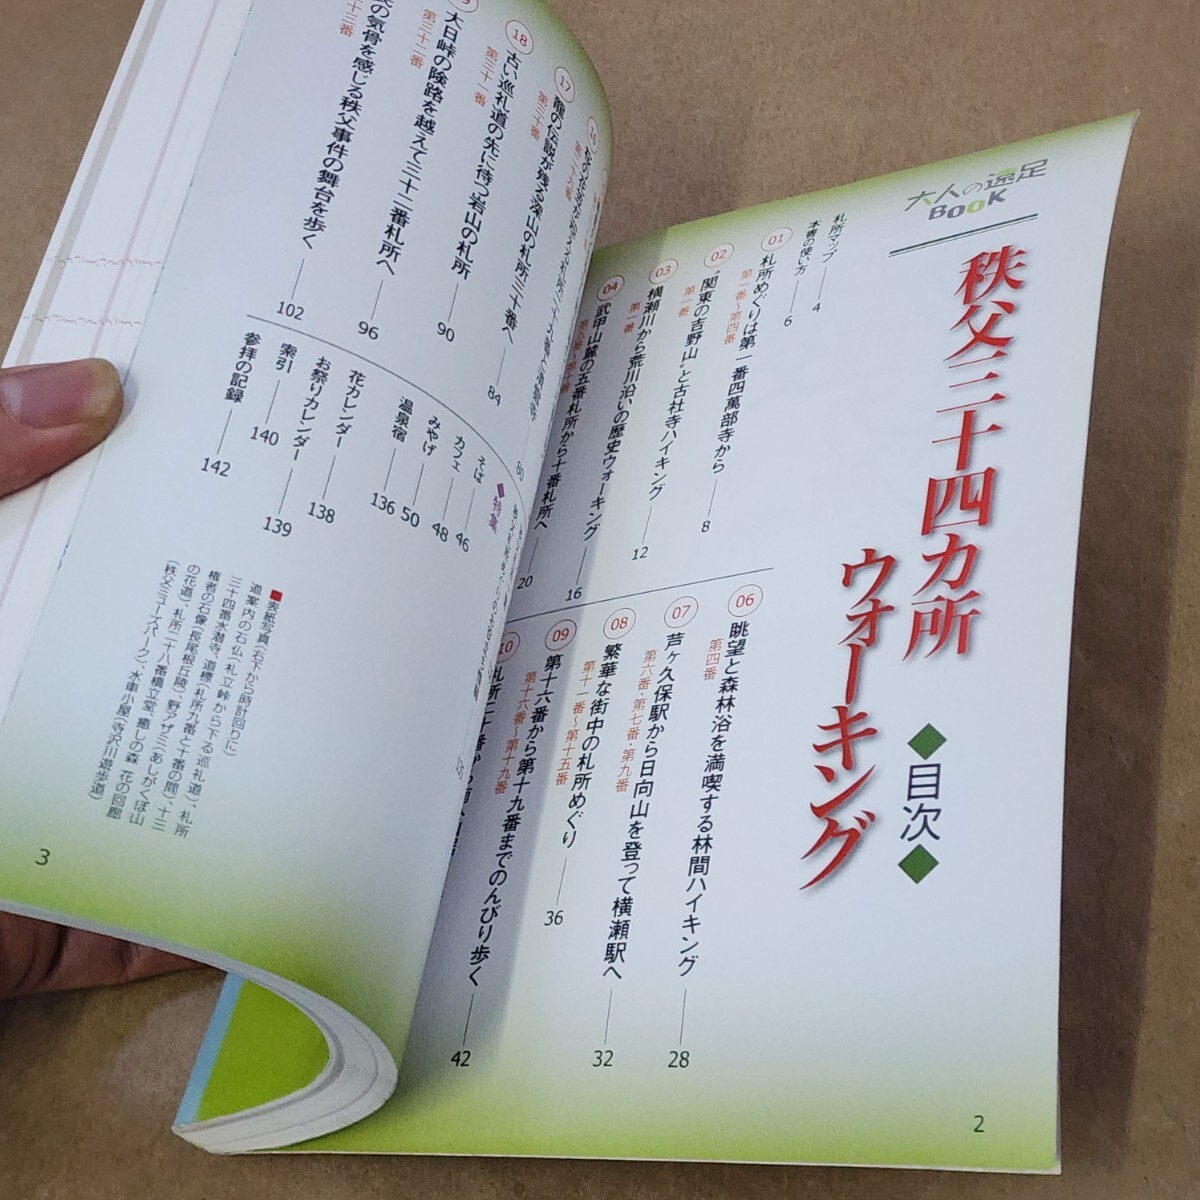 大人の遠足
BOOK
秩父三十四カ所
ウォーキング
◆目次◆
札所マップ 4
本書の使い方 6
01 札所めぐりは第一番四萬部寺から 8
第一番～第四番
02 "関東の吉野山"と古社寺ハイキング 12
第一番
03 横瀬川から荒川沿いの歴史ウォーキング 16
第一番
04 武甲山麓の五番札所から十番札所へ 20
06 眺望と森林浴を満喫する林間ハイキング 28
第四番
07 芦ヶ久保駅から日向山を登って横瀬駅へ 32
第六番・第七番・第九番
08 繁華な街中の札所めぐり 36
第十一番～第十五番
09 第十六番から第十九番までのんびり歩く 42
第十六番～第十九番
10
2
80
17 龍の伝説が残る深山の札所三十番へ 84
第三十番
18 古い巡礼道の先に待つ岩山の札所 90
第三十一番
大日峠の険路を越えて三十二番札所へ 96
第三十二番
の気骨を感じる秩父事件の舞台を歩く 102
十三番
◆特集
そば 46
カフェ 48
みやげ 50
温泉宿 136
花カレンダー 138
お祭りカレンダー 139
索引 140
参拝の記録 142
■表紙写真(右下から時計回りに)
道案内の石仏(札立峠から下る巡礼道)、札所
三十四番水潜寺、道標(札所九番と十番の間)、十三
権者の石像(長尾根丘陵)、野アザミ(あしがくぼ山
の花道)、札所二十八番橋立堂、癒しの森 花の回廊
(秩父ミューズパーク)、水車小屋(寺沢川遊歩道)
3